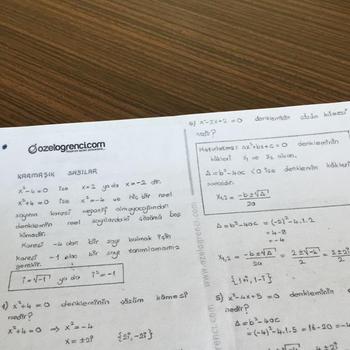 ozelogrenci.com
KARMAŞIK SAYILAR
x²-4=0 ise x=2 ya da x=-2 dir.
x²+4=0 ise x²=-4 ve hiç bir reel
sayının karesi negatif olmayacağından
denklemin reel sayılardaki çözümü boş
kümedir.
Karesi -4 olan bir sayı bulmak için
Karesi -1 olan bir sayı tanımlamamız
gerekir.
i=√-1 ya da i²=-1
1) x²+4=0 denkleminin çözüm kümesi
nedir?
x²+4=0 ⇒ x²=-4
x=±2i {2i,-2i}
4) x²-2x+2=0 denkleminin çözüm kümesi
nedir?
Hatırlatma: ax²+bx+c=0 denkleminin
kökleri x₁ ve x₂ olsun.
Δ=b²-4ac <0 ise denklemin kökleri
x₁,₂ = -b±√Δ / 2a
Δ=b²-4ac = (-2)²-4.1.2
=4-8
=-4
x₁,₂ = -b±√Δ / 2a = 2±√-4 / 2 = 2±2i / 2
{1+i,1-i}
5) x²-4x+5=0 denkleminin
nedir?
Δ=b²-4ac
=(-4)²-4.1.5 = 16-20 = -4
www.ozelogrenci.com